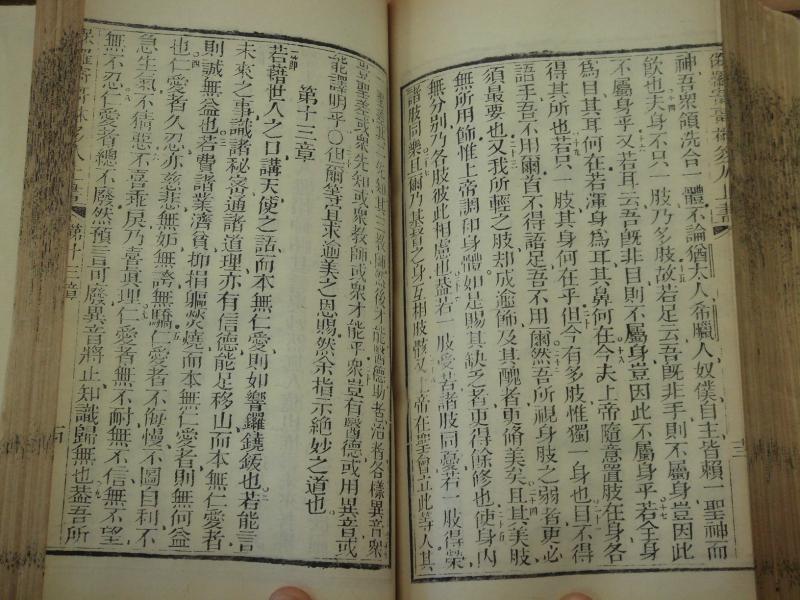 神吾眾領洗合一體不論猶太人希臘人奴僕自主皆賴一聖神而
飲也夫身不只一肢乃多肢故若足云吾旣非手則不屬身豈因此
不屬身乎又若耳云吾旣非目則不屬身豈因此不屬身乎若全身
為目其耳何在若渾身為耳其鼻何在今夫上帝隨意置肢在身各
得其所也若只一肢其身何在乎但今有多肢惟獨一身也目不得
語手吾不用爾首不得語足吾不用爾然吾所視身肢之弱者更必
須最要也又我所輕之肢却成逾飾及其醜者更脩美矣且其美肢
無所用飾惟上帝調和身體如是賜其缺乏者更得餘修也使身內
無分別乃各肢彼此相慮也葢若一肢受苦諸肢同憂若一肢得榮
諸肢同樂且爾乃基督之身互相肢骸又上帝在聖會立此等人其
後才能醫德助者治者各樣異音眾
豈皆聖差或眾先知或眾教師或眾才能乎眾豈有醫德或用異音或
能譯明乎〇但爾等宜求逾美之恩賜然余指示絶妙之道也
第十三章
若藉世人之口講天使之語而本無仁愛則如響鑼鐃鈸也若能言
未來之事識諸秘密通諸道理亦有信德能足移山而本無仁愛者
則誠無益也若費諸業濟貧抑捐軀焚燒而本無仁愛者則無何益
也仁愛者久忍亦慈悲無妬無誇無驕仁愛者不侮慢不圖自利不
急生氣不猜惡不喜乖戾乃喜真理仁愛者無不耐無不信無不望
無不忍仁愛者總不廢然預言可廢異音將止知識歸無也葢吾所
保羅寄哥林多人上書 第十三章